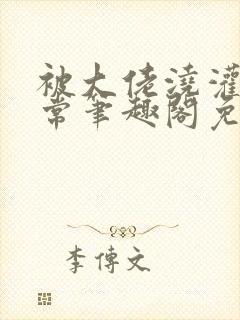 被大佬浇灌
常笔趣阁免
李傳文